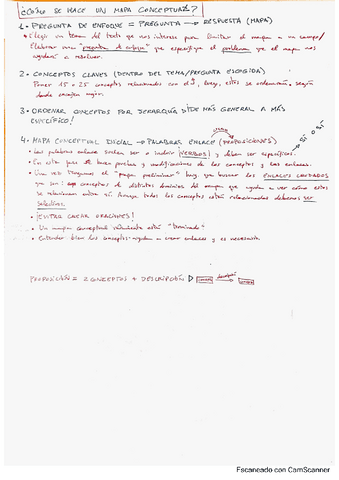 ¿CÓMO SE HACE UN MAPA CONCEPTUAL?
1- PREGUNTA DE ENFOQUE = PREGUNTA → RESPUESTA (MAPA)
Elegir un tema del texto que nos interese para limitar el mapa a un campo/
Elaborar una "pregunta de enfoque" que especifique el problema que el mapa nos
ayudará a resolver.
2- CONCEPTOS CLAVES (DENTRO DEL TEMA/PREGUNTA ESCOGIDA)
Poner 15 o 25 conceptos relacionados con él, luego, estos se ordenarán, según
donde encajen mejor.
3- ORDENAR CONCEPTOS POR JERARQUÍA DSDE MÁS GENERAL A MÁS
ESPECÍFICO!
4- MAPA CONCEPTUAL INICIAL → PALABRAS ENLACE (PROPOSICIONES)
SÍ O SÍ
Las palabras enlace suelen ser o incluir ¡VERBOS! y deben ser específicos.
En esta fase se hacen pruebas y modificaciones de los conceptos y los enlaces.
Una vez tengamos el "mapa preliminar" hay que buscar los ENLACES CRUZADOS
que son: conceptos de distintos dominios del mapa que ayudan a ver cómo estos
se relacionan entre sí. Aunque todos los conceptos están relacionados debemos ser
selectivos.
¡EVITAR CREAR ORACIONES!
Un mapa conceptual realmente está "terminado"
Entender bien los conceptos ayuda a crear enlaces y es necesario.
PROPOSICIÓN = 2 CONCEPTOS + DESCRIPCIÓN
Escaneado con CamScanner